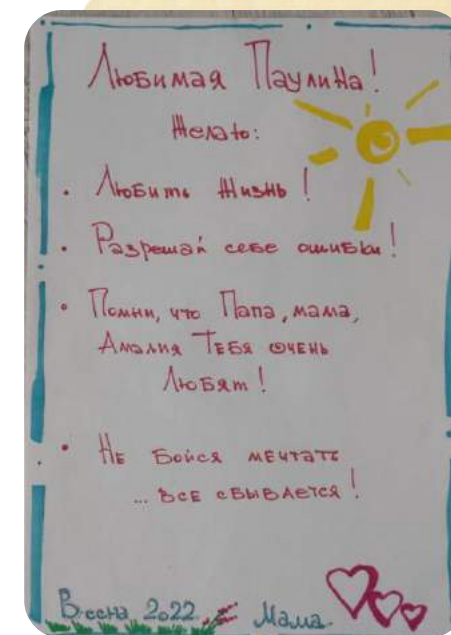 Любимая Паулина!
Желаю:
• Любить Жизнь!
• Разрешай себе ошибки!
• Помни, что Папа, мама,
Амалия Тебя очень
Любят!
• Не Бойся мечтать
... все сбывается!
Весна 2022 Мама